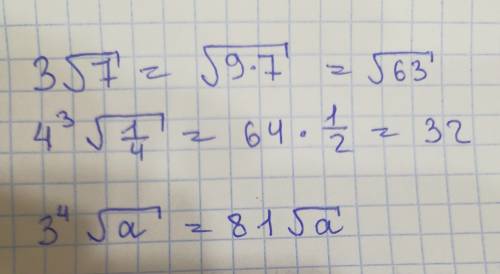 3√7 = √9·7 = √63
4³ √1/4 = 64 · 1/2 = 32
3⁴ √a = 81√a